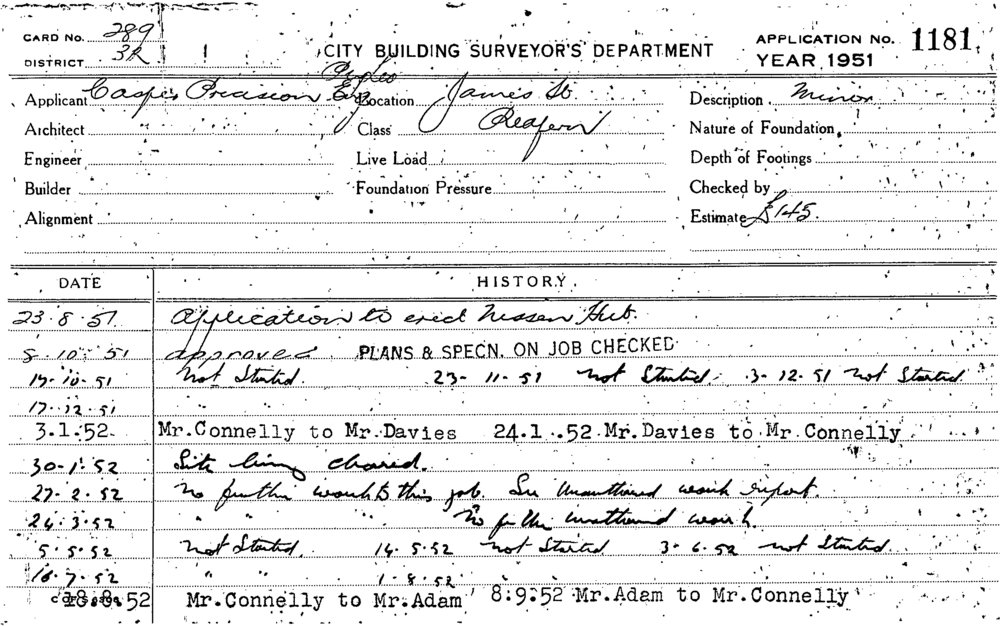 CARD No. 289
DISTRICT 3R
1
CITY BUILDING SURVEYOR'S DEPARTMENT
APPLICATION No. 1181
YEAR 1951
Applicant Precision Eng Location James St Description Minor
Architect Class Nature of Foundation
Engineer Live Load Depth of Footings
Builder Foundation Pressure Checked by
Alignment Estimate £145.
DATE HISTORY
23.8.51 Application to erect Nissen Hut.
8.10.51 approved PLANS & SPECN. ON JOB CHECKED
.10.51 Not Started. 23-11-51 Not Started. 3-12.51 Not Started.
17.12.51 " "
3.1.52. Mr.Connelly to Mr.Davies 24.1.52.Mr.Davies to Mr.Connelly
30-1.52 Site being cleared.
27.2.52 No further work to this job. See Unauthorised work report.
24.3.52 " " " No further unauthorised work.
5.5.52 Not Started. 14.5.52 Not Started 3.6.52 not started.
16.7.52 " " 1.8.52
18.8.52 Mr.Connelly to Mr.Adam 8:9:52 Mr.Adam to Mr.Connelly